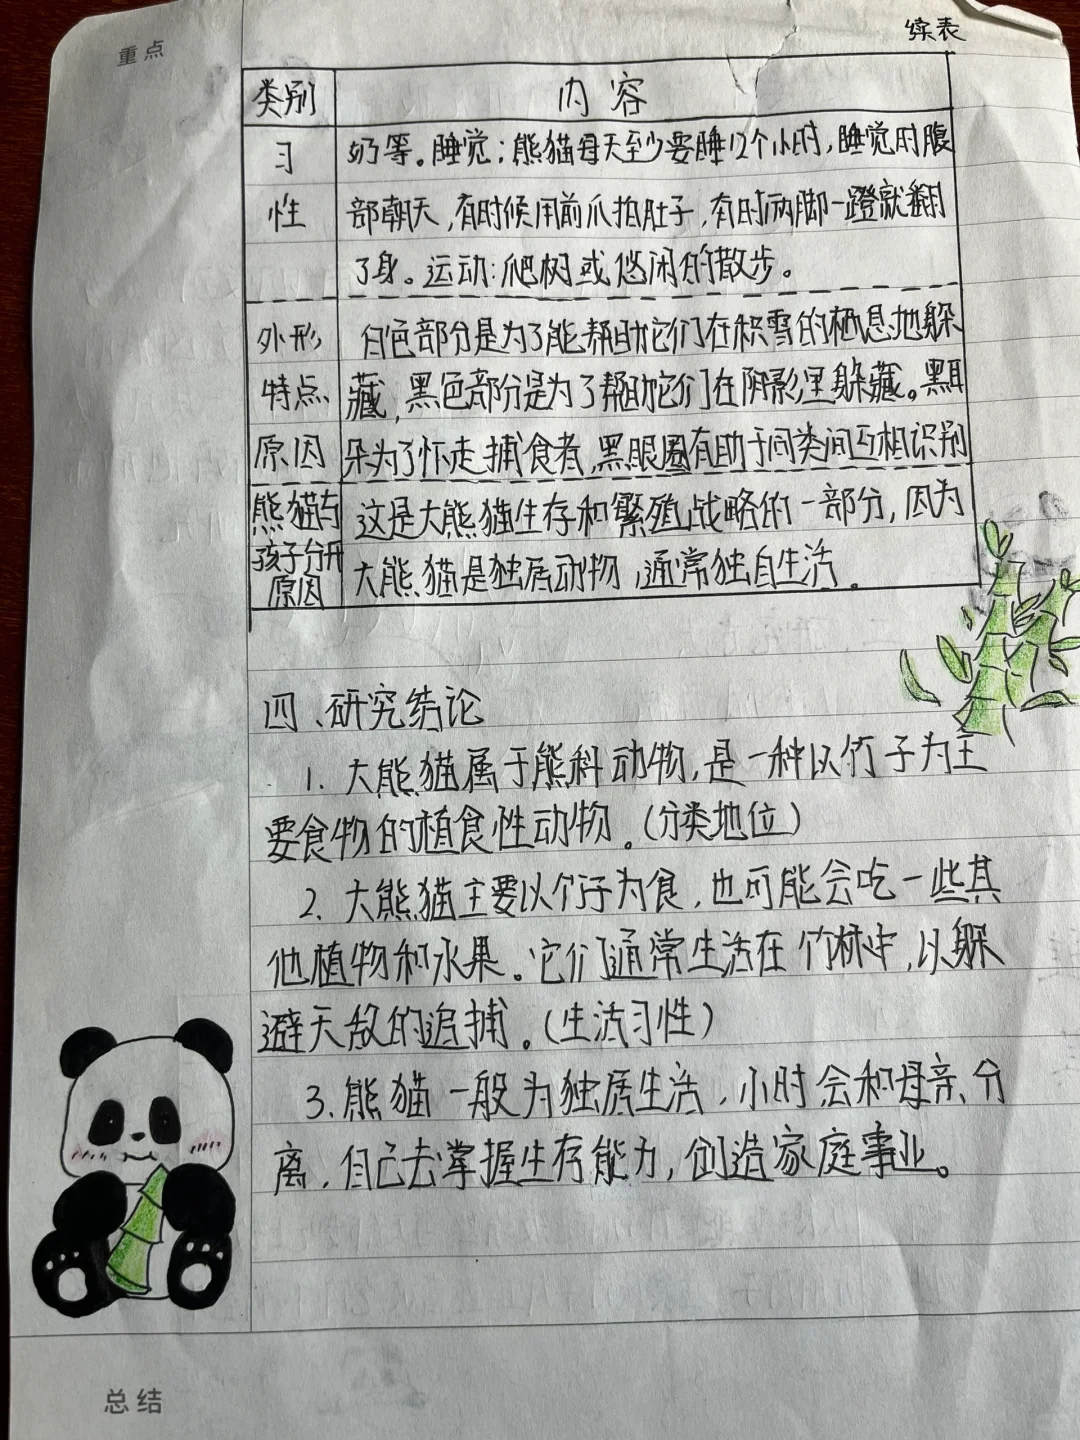 重点
续表
类别 内容
习 奶等。睡觉:熊猫每天至少要睡12个小时,睡觉时腹
性 部朝天,有时候用前爪拍肚子,有时两脚一蹬就翻
了身。运动:爬树或悠闲的散步。
外形 白色部分是为了能帮助它们在积雪的栖息地躲
特点 藏,黑色部分是为了帮助它们在阴影里躲藏。黑耳
原因 朵为了吓走捕食者,黑眼圈有助于同类间互相识别
熊猫与 这是大熊猫生存和繁殖战略的一部分,因为
孩子分开 大熊猫是独居动物,通常独自生活。
原因
四、研究结论
1. 大熊猫属于熊科动物,是一种以竹子为主
要食物的植食性动物。(分类地位)
2. 大熊猫主要以竹子为食,也可能会吃一些其
他植物和水果。它们通常生活在竹林中,以躲
避天敌的追捕。(生活习性)
3. 熊猫一般为独居生活,小时会和母亲分
离,自己去掌握生存能力,创造家庭事业。
总结